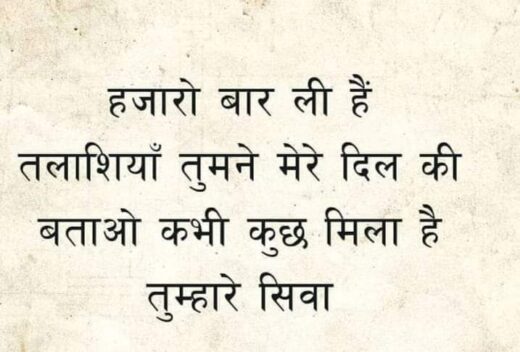 हजारो बार ली हैं
तलाशियाँ तुमने मेरे दिल की
बताओ कभी कुछ मिला है
तुम्हारे सिवा